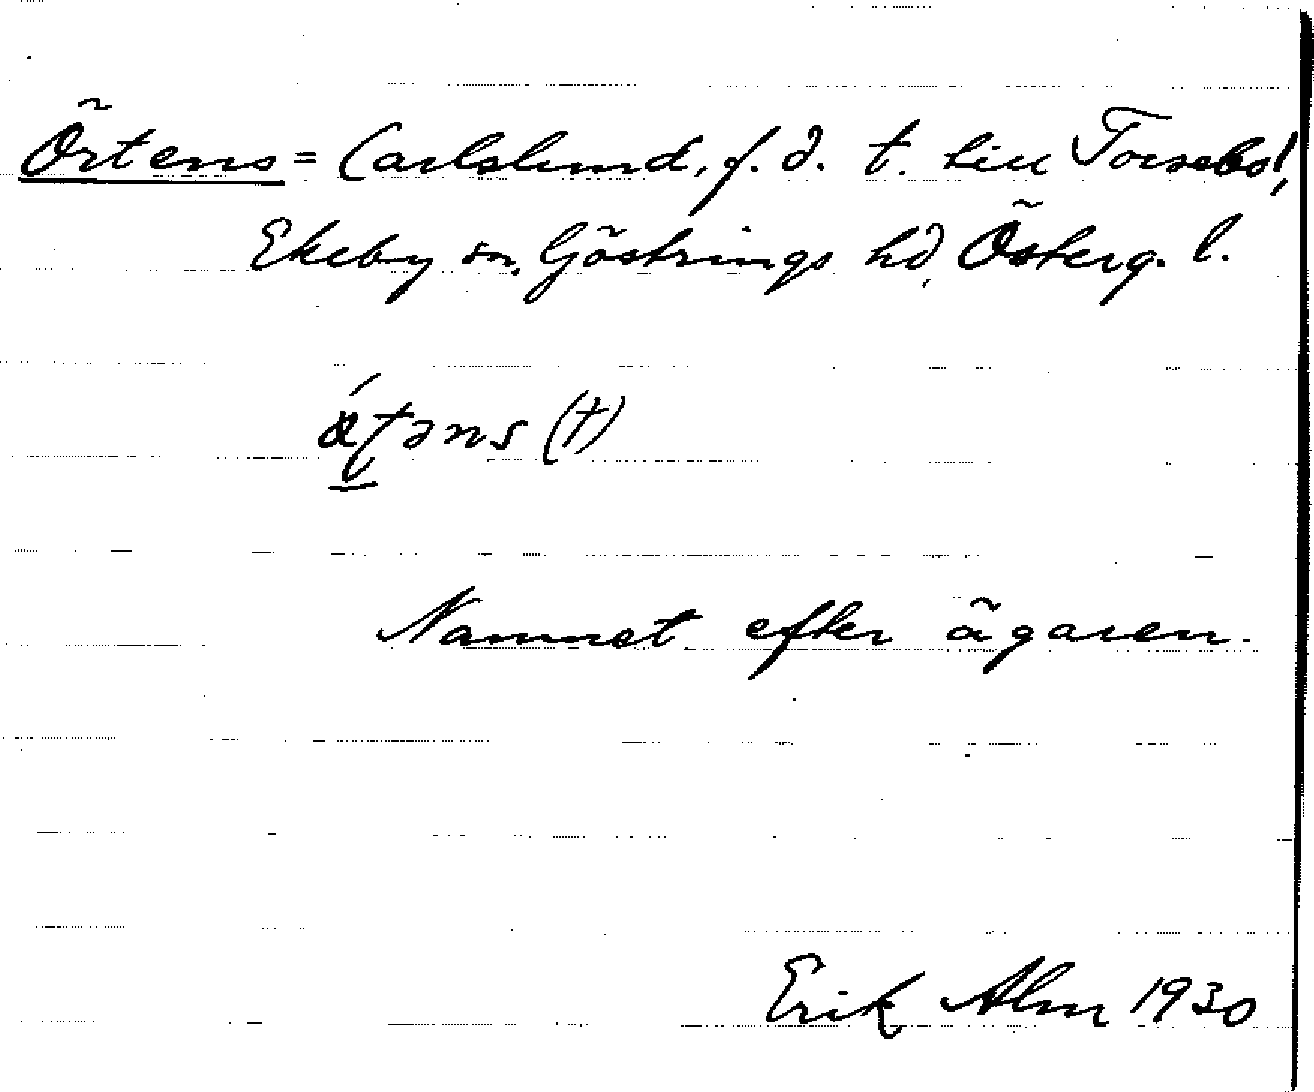 Örtens = Carlslund, f. d. t. till Torsebo!,
Ekeby sn, Göstrings hd, Österg. l.
(†)
Namnet efter ägaren.
Erik Alm 1930